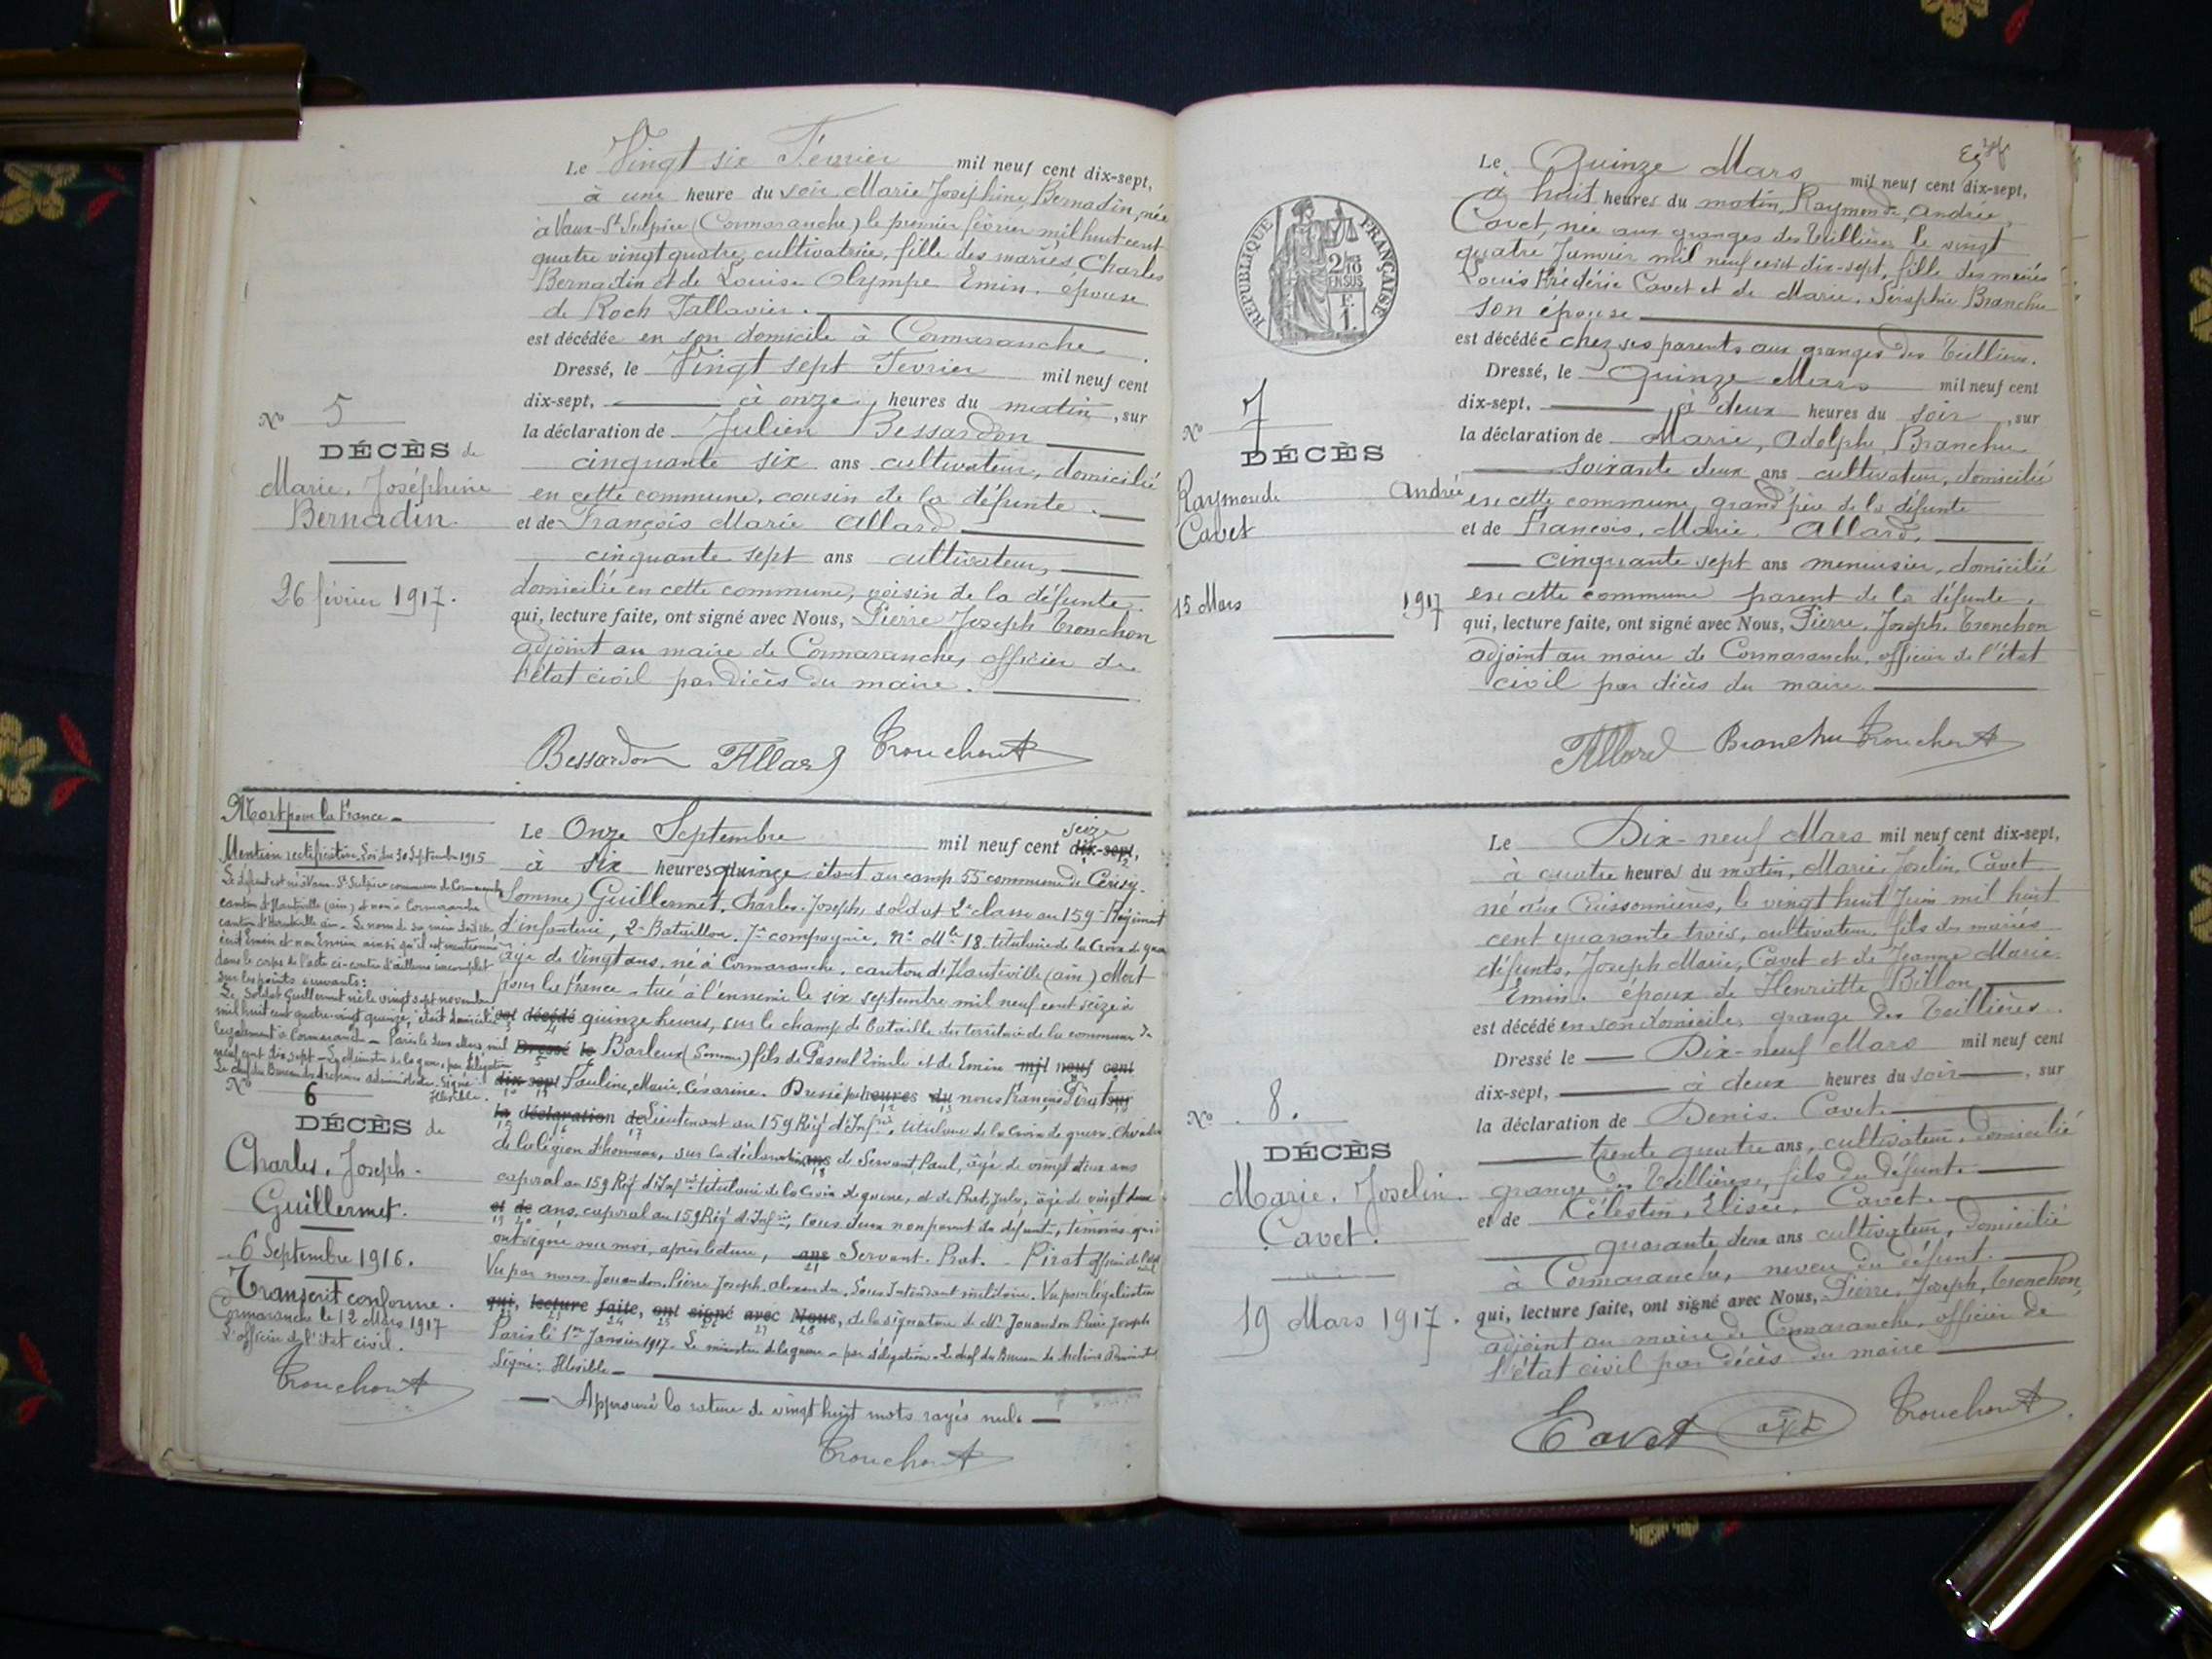 Le Vingt six Février mil neuf cent dix-sept,
à une heure du soir Marie Joséphine Bernadin, née
à Vaux-St Sulpice (Cormaranche) le premier février mil huit cent
quatre vingt quatre, cultivatrice, fille des mariés Charles
Bernadin et de Louise Olympe Emin. épouse
de Roch Tallavier.
est décédée en son domicile à Cormaranche.
Dressé, le Vingt sept Fevrier mil neuf cent
dix-sept, à onze heures du matin, sur
la déclaration de Julien Bessardon
cinquante six ans cultivateur, domicilié
en cette commune, cousin de la défunte.
et de François Marie Allard
cinquante sept ans cultivateur,
domicilié en cette commune, voisin de la défunte.
qui, lecture faite, ont signé avec Nous, Pierre Joseph Tronchon
adjoint au maire de Cormaranche, officier de
l'état civil par décès du maire.
Bessardon Allard Tronchon
No 5
DÉCÈS de
Marie, Joséphine
Bernadin.
26 février 1917.
Mort pour la France -
Mention rectificative. Loi du 30 Septembre 1915
Le défunt est né à Vaux-St Sulpice commune de Cormaranche
canton d'Hauteville (ain) et non à Cormaranche
canton d'Hauteville ain. - Le nom de sa mère doit être
écrit Emin et non Ennin ainsi qu'il est mentionné
dans le corps de l'acte ci-contre d'ailleurs incomplet
sur les points suivants:
Le Soldat Guillermet né le vingt sept novembre
mil huit cent quatre-vingt quinze, était domicilié
légalement à Cormaranche - Paris le deux Mars mil
neuf cent dix sept - Le Ministre de la guerre, par délégation
Le chef du Bureau des Archives administratives. Signé:
Illisible.
No 6
DÉCÈS de
Charles, Joseph.
Guillermet.
6 Septembre 1916.
Transcrit conforme.
Cormaranche le 12 Mars 1917
L'officier de l'état civil.
Tronchon
Le Onze Septembre mil neuf cent dix-sept, seize
à six heures quinze étant au camp 55 commune de Cerisy.
(Somme) Guillermet, Charles Joseph, soldat 2e classe au 159e Régiment
d'infanterie, 2e Bataillon, 7e compagnie, No Mle 18 titulaire de la Croix de guerre
âgé de Vingt ans, né à Cormaranche, canton d'Hauteville (ain) Mort
pour la France - tué à l'ennemi le six septembre mil neuf cent seize à
est décédé quinze heures, sur le champ de bataille du territoire de la commune de
Dressé le Barleux (Somme) fils de Pascal Emile et de Emin mil neuf cent
dix-sept Pauline, Marie, Césarine. Dressé par heures du nous François Pirat sur
la déclaration de Lieutenant au 159 Régt d'Infrie, titulaire de la Croix de guerre, Chevalier
de la légion d'honneur, sur la déclaration ans de Servant Paul, âgé de vingt deux ans
caporal au 159 Régt d'Infrie titulaire de la Croix de guerre, et de Prat, Jules, âgé de vingt deux
et de ans, caporal au 159 Régt d'Infrie, tous deux non parent du défunt, témoins qui
ont signé avec moi, après lecture, ans Servant. Prat. - Pirat officier de l'état civil
Vu par nous Jouandon Pierre Joseph Alexandre, Sous Intendant militaire. Vu pour légalisation
qui, lecture faite, ont signé avec Nous, de la signature de Mr Jouandon Pierre Joseph
Paris le 1er Janvier 1917. Le ministre de la guerre - par délégation - Le chef du Bureau des Archives administratives
Signé: Illisible -
- Approuvé la rature de vingt huit mots rayés nuls -
Tronchon
REPUBLIQUE FRANÇAISE
2/10
EN SUS
1 F.
Le Quinze Mars mil neuf cent dix-sept,
à huit heures du matin, Raymonde, Andrée,
Cavet, née aux granges des Teillières le vingt
quatre Janvier mil neuf cent dix-sept, fille des mariés
Louis Frédéric Cavet et de Marie, Séraphie Branche
son épouse
est décédée chez ses parents aux granges des Teillières.
Dressé, le Quinze Mars mil neuf cent
dix-sept. à deux heures du soir, sur
la déclaration de Marie, Adolphe, Branche
soixante deux ans cultivateur, domicilié
en cette commune grand père de la défunte
et de François, Marie, Allard,
cinquante sept ans menuisier, domicilié
en cette commune parent de la défunte.
qui, lecture faite, ont signé avec Nous, Pierre, Joseph, Tronchon
adjoint au maire de Cormaranche, officier de l'état
civil par décès du maire
Allard Branche Tronchon
No 7
DÉCÈS
Raymonde Andrée
Cavet
15 Mars 1917
Le Dix-neuf Mars mil neuf cent dix-sept,
à quatre heures du matin, Marie, Joselin, Cavet
né aux Cuissonnières, le vingt huit Juin mil huit
cent quarante trois, cultivateur, fils des mariés
défunts, Joseph Marie, Cavet et de Jeanne Marie
Emin. époux de Henriette Billon
est décédé en son domicile, grange des Teillières.
Dressé le Dix-neuf Mars mil neuf cent
dix-sept, à deux heures du soir, sur
la déclaration de Denis. Cavet.
trente quatre ans, cultivateur, domicilié
grange des Teillières, fils du défunt.
et de Célestin, Elisée, Cavet.
quarante deux ans cultivateur, domicilié
à Cormaranche, neveu du défunt.
qui, lecture faite, ont signé avec Nous, Pierre, Joseph, Tronchon,
adjoint au maire de Cormaranche, officier de
l'état civil par décès du maire
Cavet Tronchon
No 8.
DÉCÈS
Marie, Joselin.
Cavet.
19 Mars 1917.